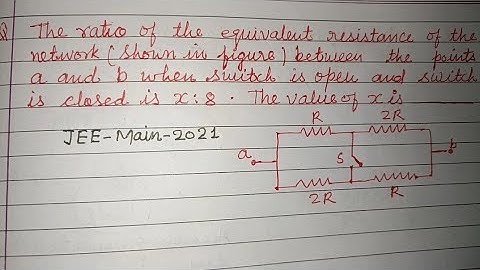 Q The ratio of the equivalent resistance of the
network (shown in figure) between the points
a and b when switch is open and switch
is closed is x:8. The value of x is
JEE-Main-2021
R 2R
a S b
2R R